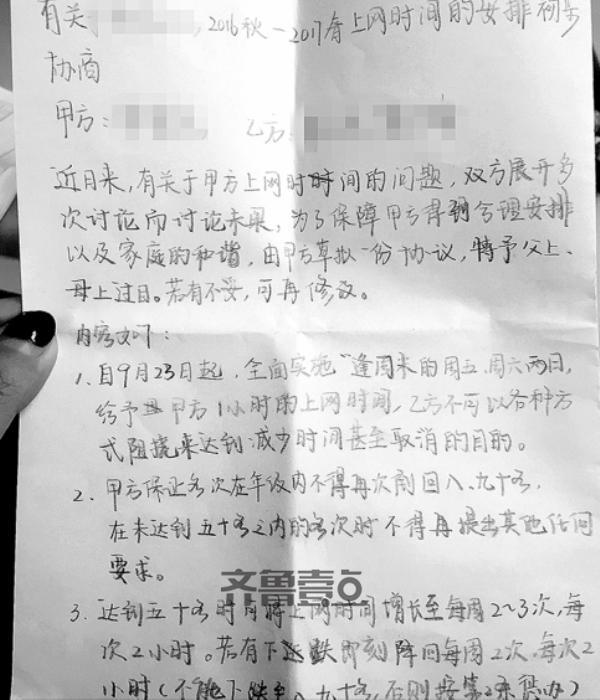 有关 2016秋—2017春上网时间的安排初步
协商
甲方： 乙方：
近日来，有关于甲方上网时时间的问题，双方展开多
次讨论而讨论未果，为了保障甲方得到合理安排
以及家庭的和谐，由甲方草拟一份协议，特予父上、
母上过目。若有不妥，可再修改。
内容如下：
1、自9月23日起，全面实施“逢周末的周五、周六两日，
给予甲方1小时的上网时间，乙方不可以各种方
式阻挠来达到减少时间甚至取消的目的。
2、甲方保证名次在年级内不得再次削回八、九十名，
在未达到五十名之内的名次时不得再提出其他任何
要求。
齐鲁壹点
3、达到五十名时将上网时间增长至每周2~3次，每
次2小时。若有下跌即刻降回每周2次，每次2
小时（不能下跌至八九十名，否则按第2条代办）